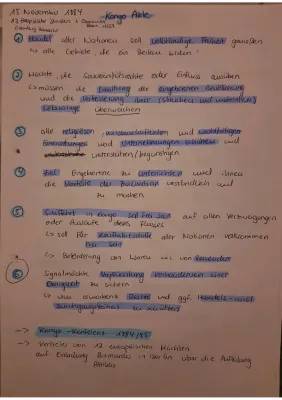 15 November 1884
Kongo Akte
① Handel aller Nationen soll vollständige Freiheit genießen
↳ alle Gebiete, die ein Becken bilden
② Mächte, die Souveränitätsrechte oder Einfluss ausüben
↳ müssen die Erhaltung der eingeborenen Bevölkerung
und die Verbesserung ihrer (sittlichen und materiellen)
Lebenslage überwachen
③ alle religiösen, wissenschaftlichen und wohltätigen
Einrichtungen und Unternehmungen schützen und
unterstützen/begünstigen
④ Ziel Eingeborene zu unterrichten und ihnen
die Vorteile der Zivilisation verständlich und
zu machen
⑤ Schifffahrt in Kongo soll frei sein auf allen Verzweigungen
oder Ausläufe dieses Flusses
↳ soll für Handelsschiffe aller Nationen vollkommen
frei sein
↳ Beförderung von Waren wie von Reisenden
⑥ Signatmächte Verpflichtung
zu sichern
Rechte und ggf. Handels- und
zu schützen
→ Kongo-Konferenz 1884/85
→ Vertreter von 12 europäischen Mächten
auf Einladung Bismarcks in Berlin über die Aufteilung
Afrikas